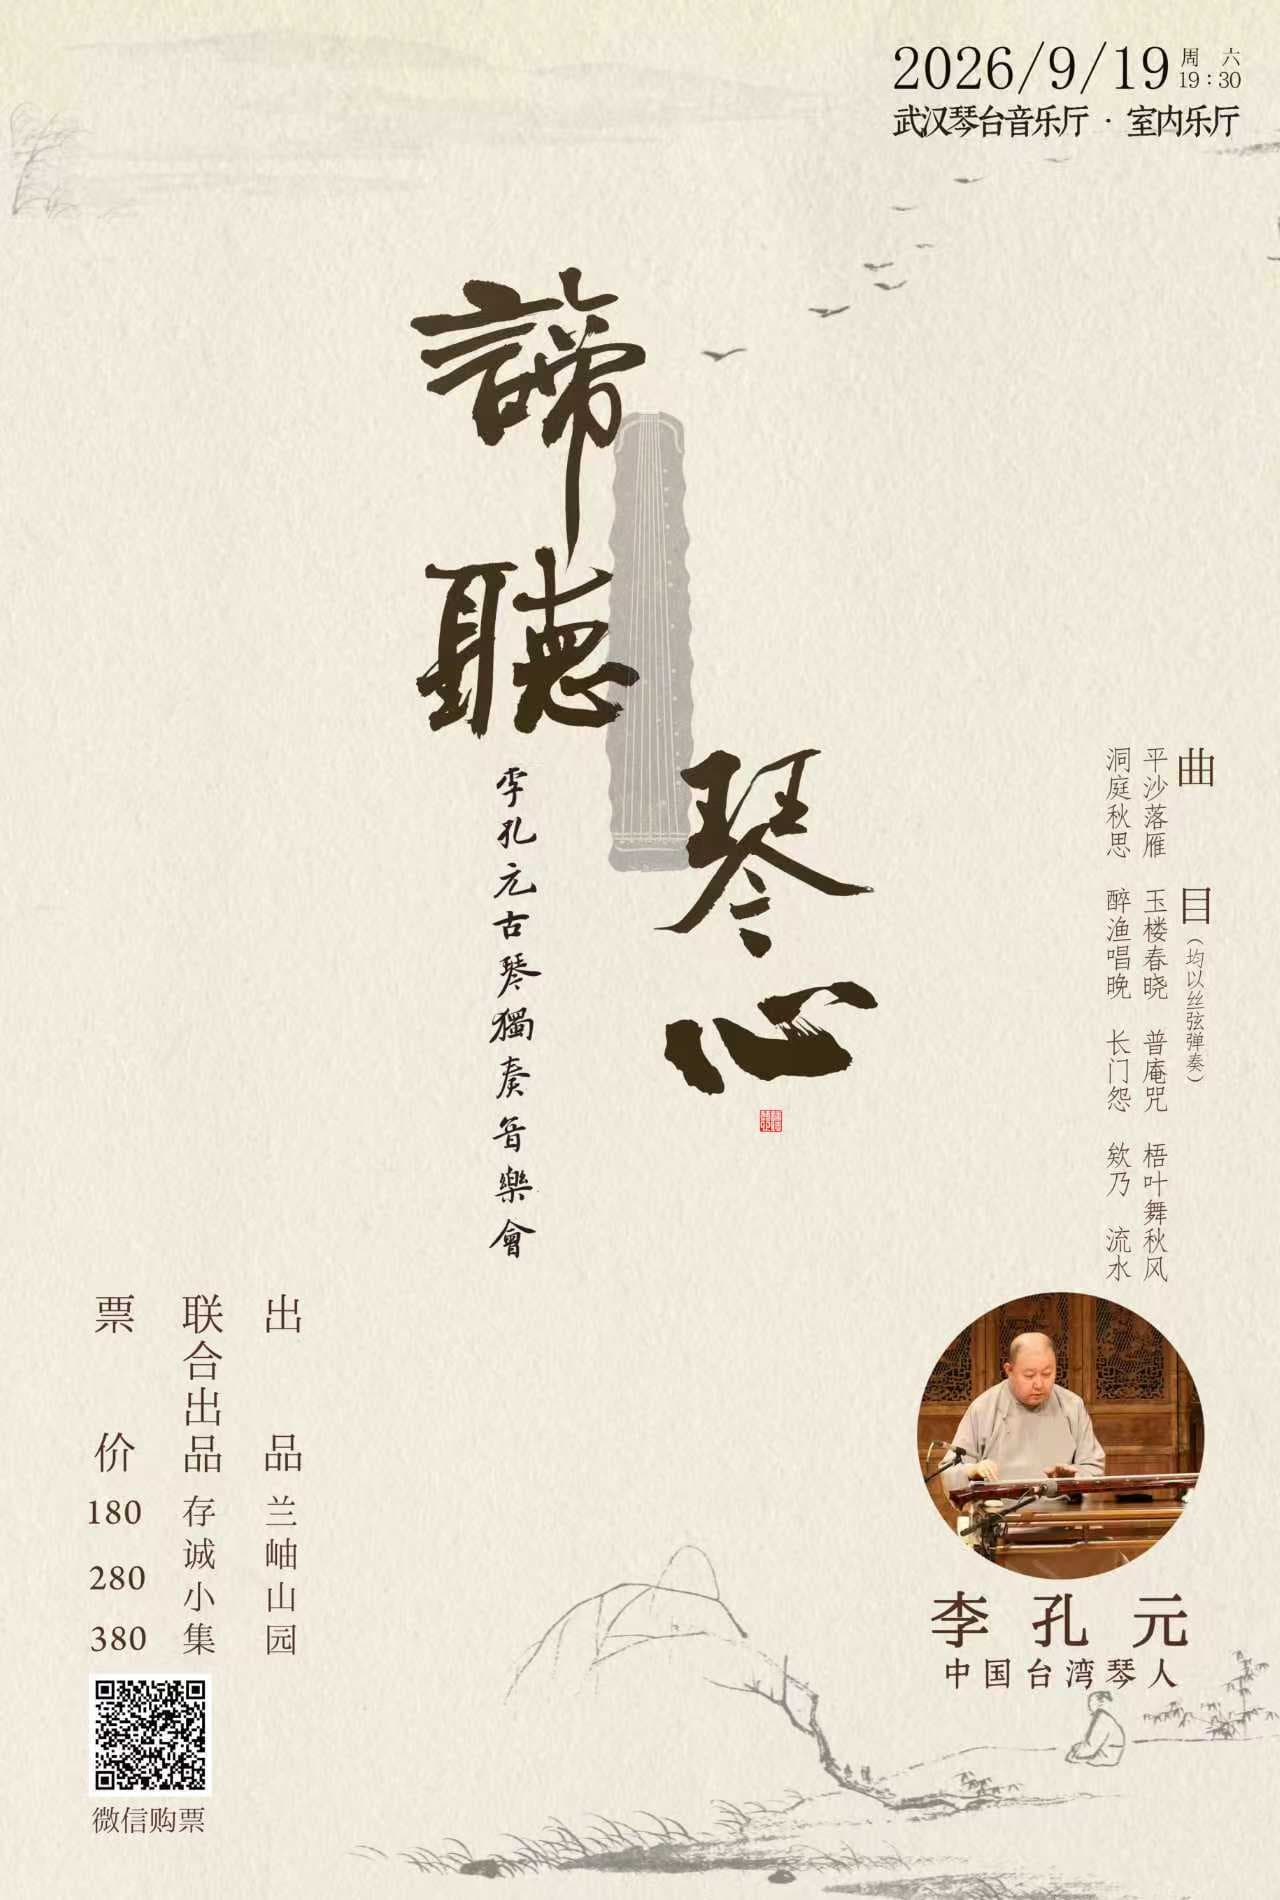 2026/9/19 周六 19:30
武汉琴台音乐厅 · 室内乐厅
諦聽
琴心
李孔元古琴獨奏音樂會
曲目(均以丝弦弹奏)
平沙落雁 玉楼春晓 普庵咒 梧叶舞秋风
洞庭秋思 醉渔唱晚 长门怨 欸乃 流水
出品 兰岫山园
联合出品 存诚小集
票价 180 280 380
微信购票
李孔元
中国台湾琴人